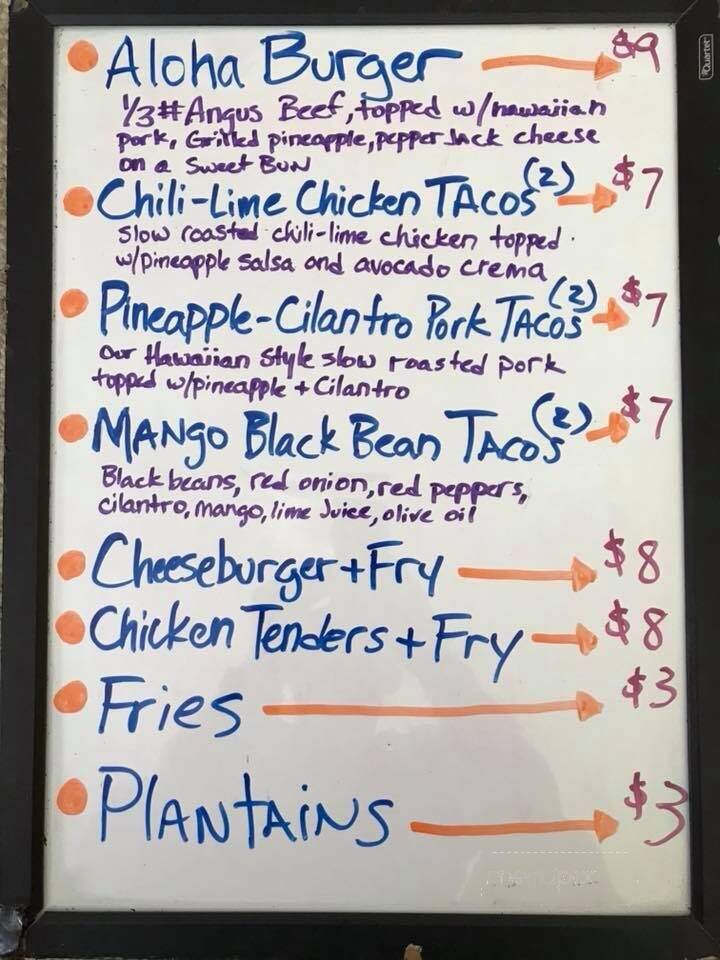 Quartet
Aloha Burger $9
1/3# Angus Beef, topped w/hawaiian
pork, Grilled pineapple, pepper Jack cheese
on a Sweet Bun
Chili-Lime Chicken TACOS (2) $7
slow roasted chili-lime chicken topped
w/pineapple salsa and avocado crema
Pineapple-Cilantro Pork TACOS (2) $7
Our Hawaiian Style slow roasted pork
topped w/pineapple + Cilantro
MANgo Black Bean TACOS (2) $7
Black beans, red onion, red peppers,
cilantro, mango, lime Juice, olive oil
Cheeseburger + Fry $8
Chicken Tenders + Fry $8
Fries $3
PlANtAiNS $3